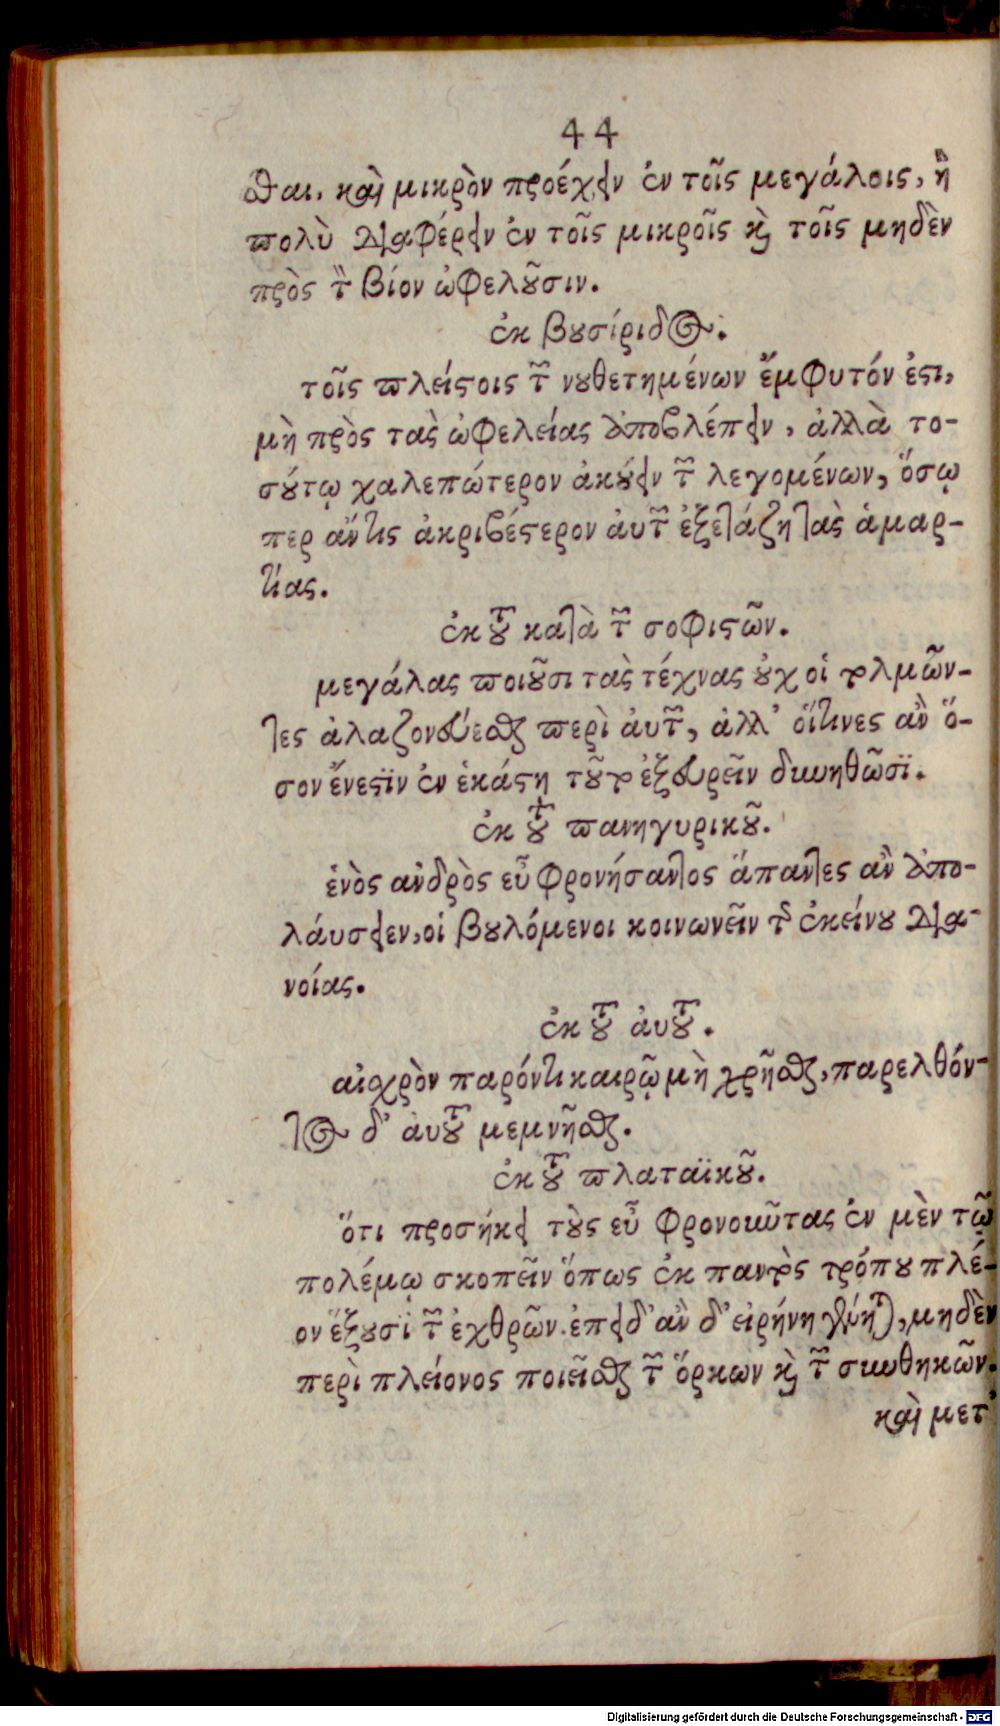 44
σθαι, καὶ μικρὸν προέχειν ἐν τοῖς μεγάλοις, ἢ
πολὺ διαφέρειν ἐν τοῖς μικροῖς κὶ τοῖς μηδὲν
πρὸς τὸν βίον ὠφελοῦσιν.
ἐκ βουσίριδος.
τοῖς πλείστοις τῶν νουθετημένων ἔμφυτόν ἐστι,
μὴ πρὸς τὰς ὠφελείας ἀποβλέπειν, ἀλλὰ το-
σούτῳ χαλεπώτερον ἀκούειν τῶν λεγομένων, ὅσῳ
περ ἄν τις ἀκριβέστερον ἀυτῶν ἐξετάζῃ τὰς ἁμαρ-
τίας.
ἐκ τοῦ κατὰ τῶν σοφιστῶν.
μεγάλας ποιοῦσι τὰς τέχνας ὀυχ οἱ τολμῶν-
τες ἀλαζονεύεσθαι περὶ ἀυτῶν, ἀλλ' οἵτινες ἂν ὅ-
σον ἔνεστϊν ἐν ἑκάστῃ τοῦτο ἐξευρεῖν δυνηθῶσϊ.
ἐκ τοῦ πανηγυρικοῦ.
ἑνὸς ἀνδρὸς εὖ φρονήσαντος ἅπαντες ἂν ἀπο-
λάυσειεν, οἱ βουλόμενοι κοινωνεῖν τῆς ἐκείνου δια-
νοίας.
ἐκ τοῦ ἀυτοῦ.
αἰσχρὸν παρόντι καιρῷ μὴ χρῆσθαι, παρελθόν-
τος δ' ἀυτοῦ μεμνῆσθαι.
ἐκ τοῦ πλαταϊκοῦ.
ὅτι προσήκει τοὺς εὖ φρονοῦντας ἐν μὲν τῷ
πολέμῳ σκοπεῖν ὅπως ἐκ παντὸς τρόπου πλέ-
ον ἕξουσι τῶν ἐχθρῶν. ἐπειδ' ἂν δ' εἰρήνη γένηται, μηδὲν
περὶ πλείονος ποιεῖσθαι τῶν ὅρκων κὶ τῶν συνθηκῶν.
καὶ μετ'
Digitalisierung gefördert durch die Deutsche Forschungsgemeinschaft - DFG